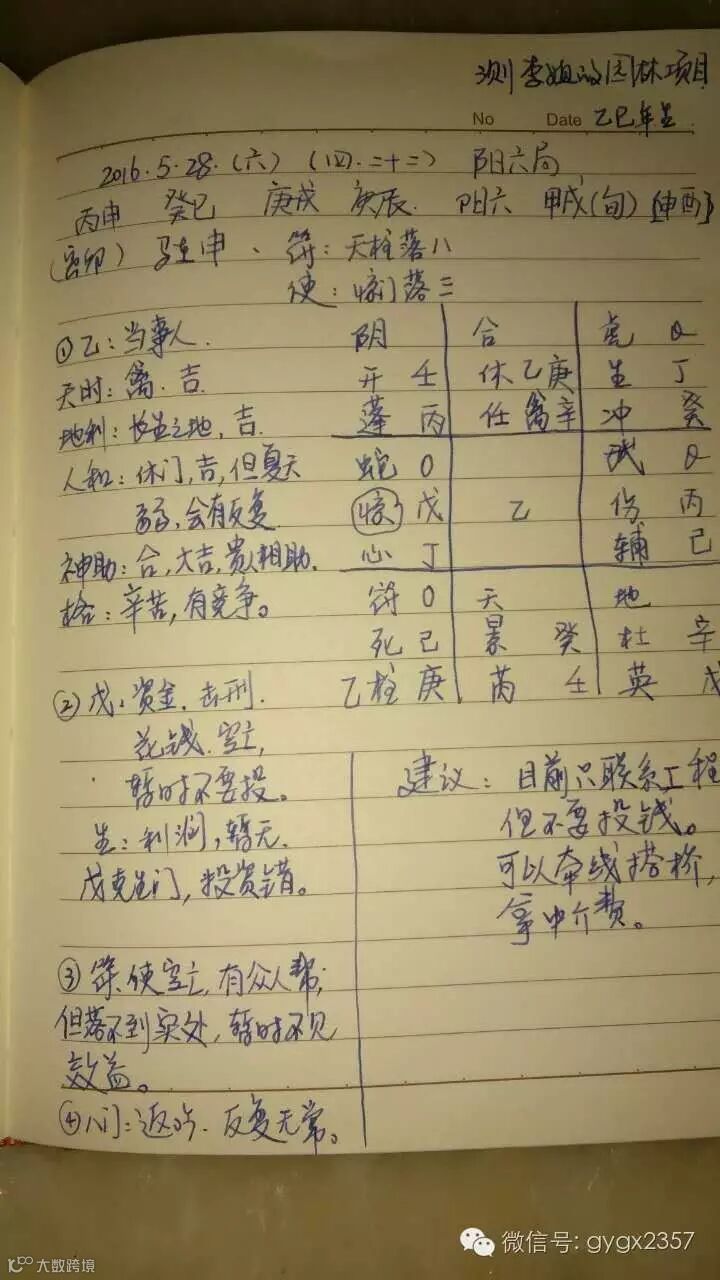 测李姐的园林项目
No Date 乙巳年生
2016.5.28.(六) (四.二十二) 阳六局
丙申 癸巳 庚戌 庚辰. 阳六 甲戌(旬) [申酉]
驻申. 符:天柱落八
使:惊门落三
①乙:当事人.
天时:禽.吉.
地利:长生之地,吉.
人和:休门,吉,但夏天
弱,会有反复
神助:合,大吉,贵人相助.
格:辛苦,有竞争。
阴 合 虎
开 壬 休 乙庚 生 丁
蓬 丙 任 禽辛 冲 癸
蛇 O 武
惊 戊 乙 伤 丙
心 丁 辅 己
符 O 天 地
死 己 景 癸 杜 辛
乙柱 庚 芮 壬 英 戊
②戊:资金.击刑.
花钱.空亡,
暂时不要投。
生:利润,暂无.
戊克生门,投资错。
建议:目前只联系工程
但不要投钱。
可以牵线搭桥,
拿中介费。
③符.使空亡,有众人帮;
但落不到实处,暂时不见
效益。
④八门:返吟.反复无常。
微信号: gygx2357
大数跨境